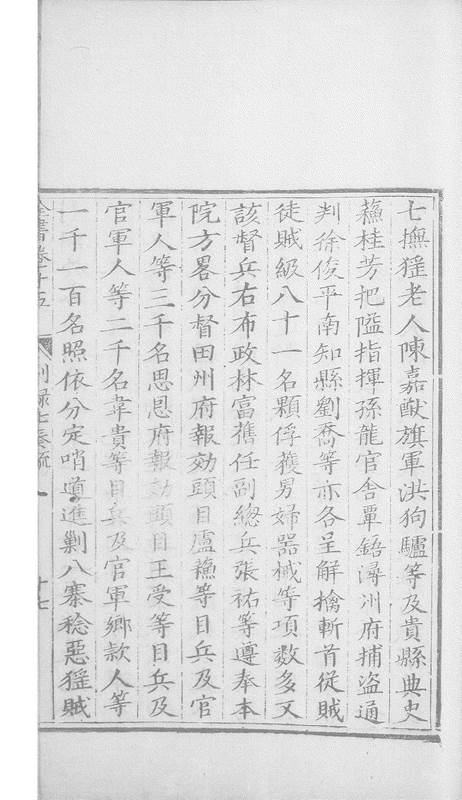 七撫猺老人陳嘉猷旗軍洪狗驢等及貴縣典史
蘓桂芳把隘指揮孫龍官舎覃鋙潯洲府捕盗通
判徐俊平南知縣劉喬等亦各呈解擒斬首從賊
徒賊級八十一名顆俘獲男婦器械等項数多又
該督兵右布政林富舊任副總兵張祐等遵奉本
院方畧分督田州府報効頭目盧蘓等目兵及官
軍人等三千名思恩府報効頭目王受等目兵及
官軍人等二千名韋貴等目兵及官軍郷款人等
一千一百名照依分定哨道進剿八寨稔惡猺賊
全書卷十五
別録七奏疏
十七